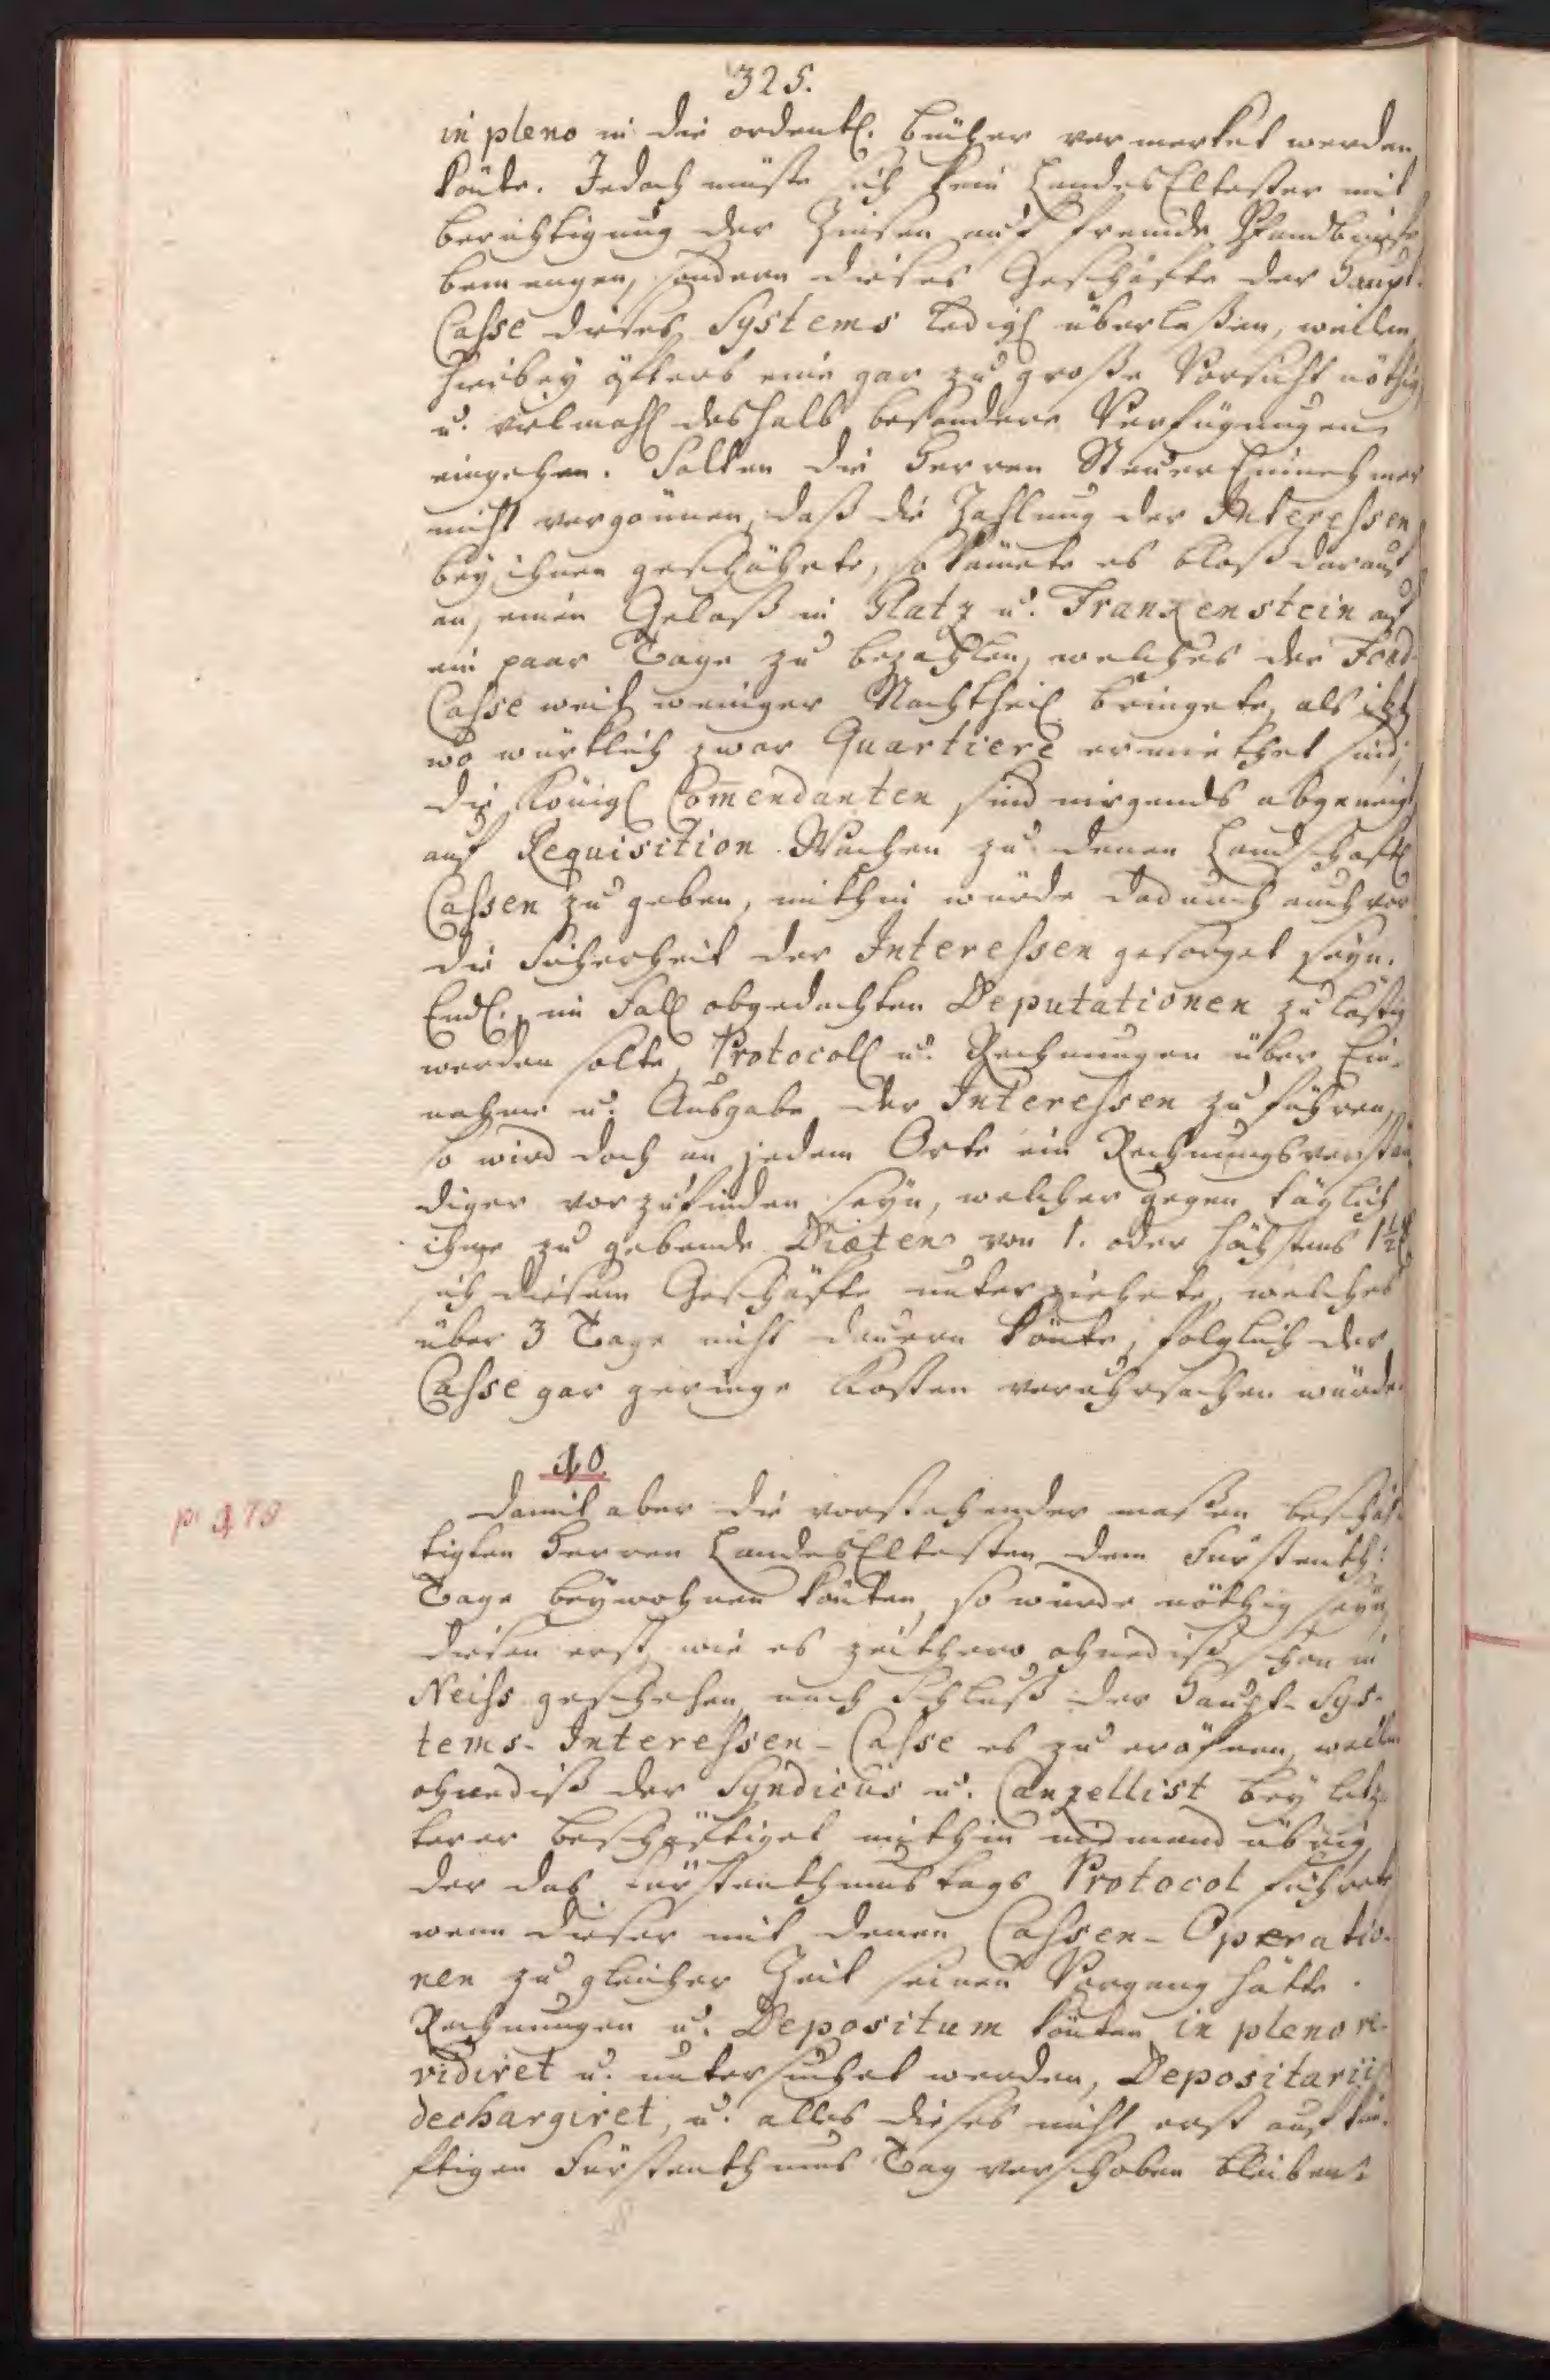 325.
in pleno in die ordentl. Bücher vermerket werden
könte. Jedoch müste sich kein LandesEltester mit
Berichtigung der Zinsen auf fremde Pfandbriefe
bemengen, sondern dieses Geschäfte der Haupt-
Casse dieses Systems ledigl überlaßen, weilen
hiebey öfters eine gar zu große Vorsicht nöthig,
u. vielmahl deshalb besondere Verfügungen
eingehen. Solten die Herren SteuerEinnehmer
nicht vergönnen, daß die Zahlung der Interessen
bey ihnen geschähete, so kämete es bloß darauf
an, einen Gelaß in Glatz u. Frankenstein auf
ein paar Tage zu bezahlen, welches der Fond-
Casse weit weniger Nachtheil bringete, als itzt
wo würklich zwar Quartiere ermiethet sind,
die Königl Comendanten sind nirgends abgeneigt
auf Requisition Wachen zu denen Landschaftl
Cassen zu geben, mithin würde dadurch auch vor
die Sicherheit der Interessen gesorget seyn.
Endl. im Fall obgedachten Deputationen zu lästig
werden solte, Protocoll u. Rechnungen über Ein-
nahme u. Ausgabe der Interessen zu führen,
so wird doch an jedem Orte ein Rechnungsverstän
diger vorzufinden seyn, welcher gegen täglich
ihme zu gebende Diæten von 1. oder höchstens 1½
sich diesem Geschäfte unterziehete, welches
über 3 Tage nicht dauern könte, folglich der
Casse gar geringe Kosten veruhrsachen würde.
10.
p. 178
Damit aber die vorstehender maßen beschäf-
tigten Herren LandesEltesten dem Fürstenth:
Tage beywohnen könten, so würde nöthig seyn,
diesen erst, wie es zeithero ohnediß schon in
Neiss geschehen, nach Schluß der Haupt-Sys-
tems-Interessen-Casse es zu eröfnen, weilen
ohnediß der Syndicus u. Canzellist bey letz-
terer beschäftiget mithin niemand übrig
der das Fürstenthumstags Protocol führete
wenn dieser mit denen Cassen-Operatio-
nen zu gleicher Zeit seinen Vorgang hätte.
Rechnungen u. Depositum könten in pleno re-
vidiret u. untersuchet werden, Depositarii
dechargiret, u. alles dieses nicht erst auf kün-
ftigen Fürstenthums Tag verschoben bleiben.